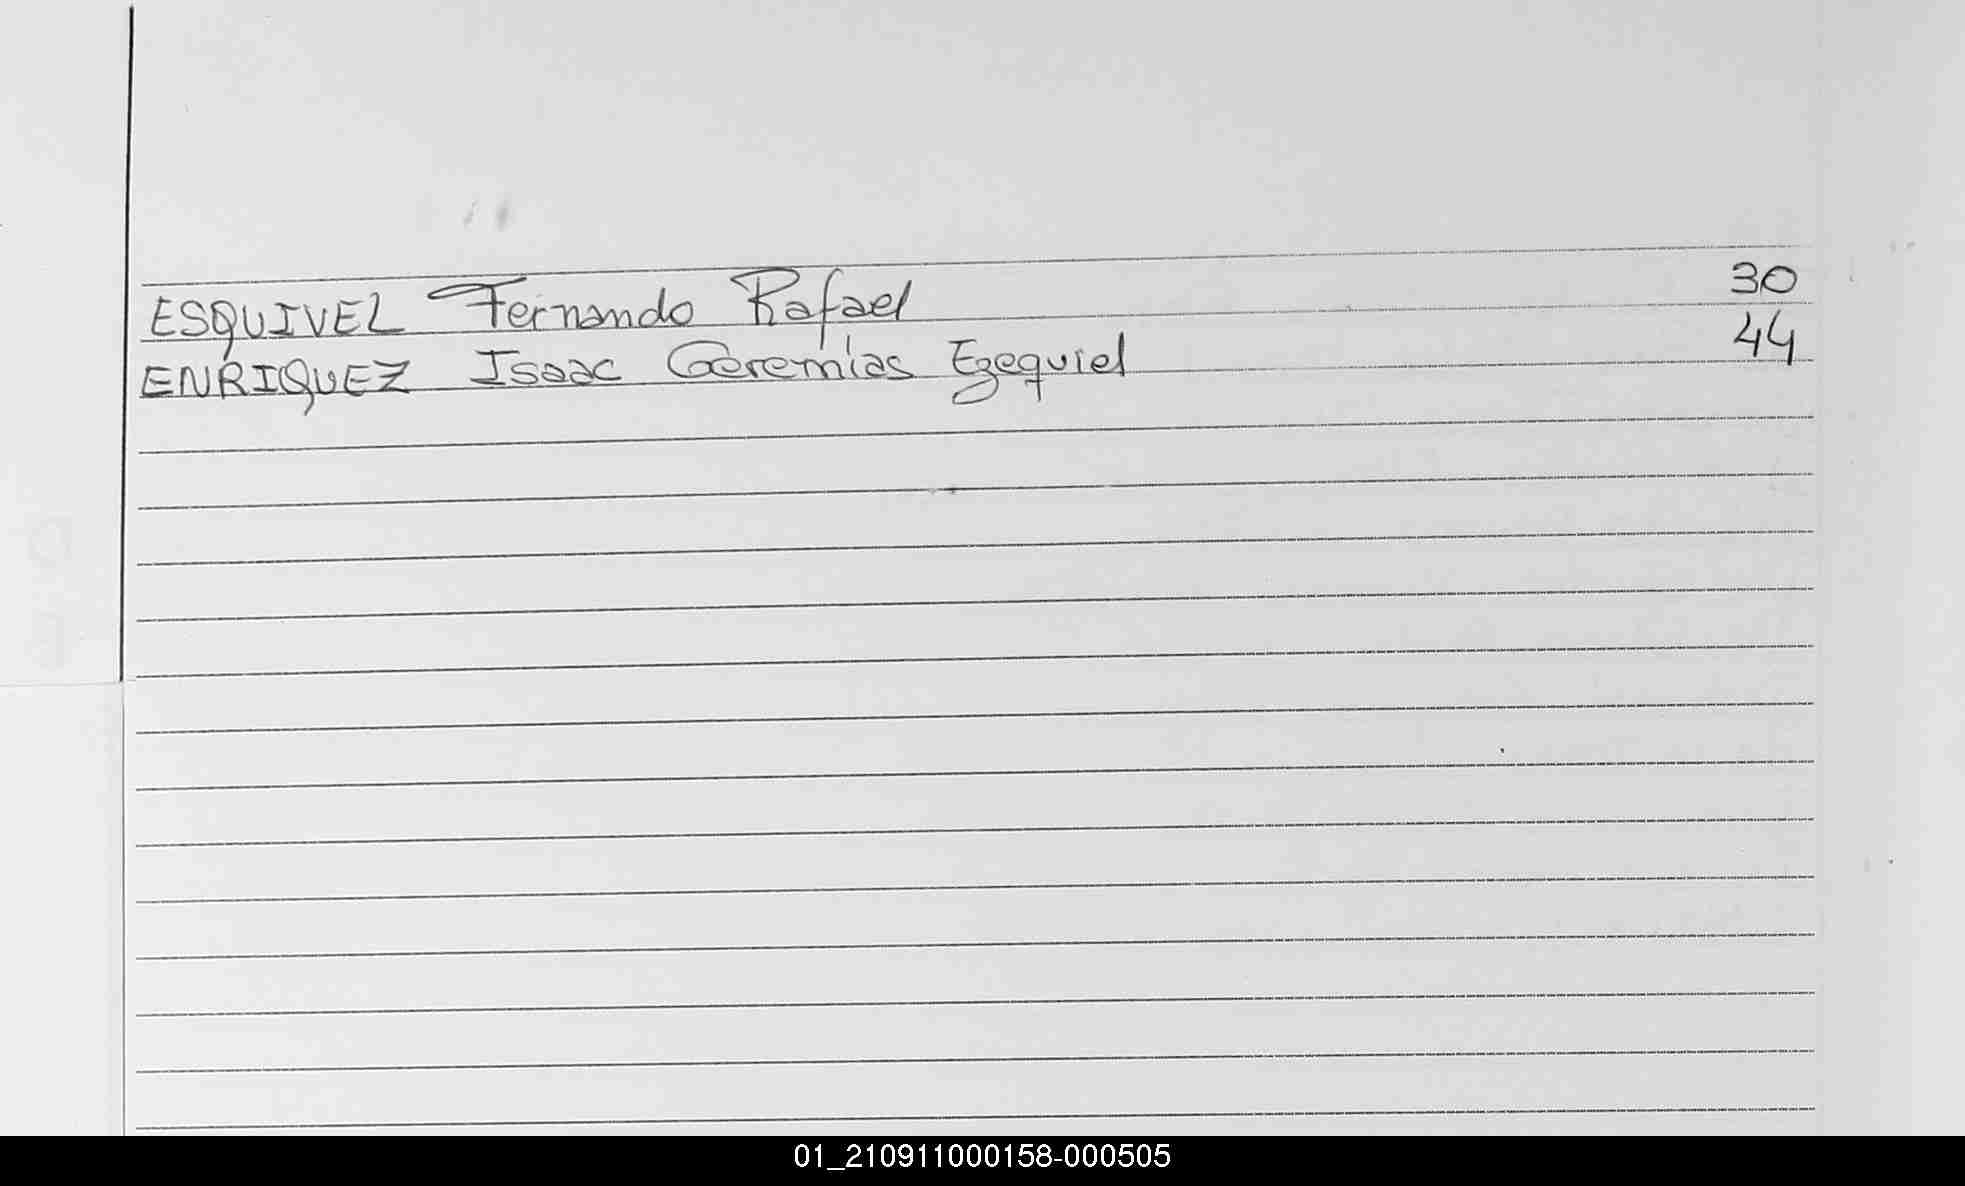 ESQUIVEL Fernando Rafael 30
ENRIQUEZ Isaac Geremías Ezequiel 44
01_210911000158-000505